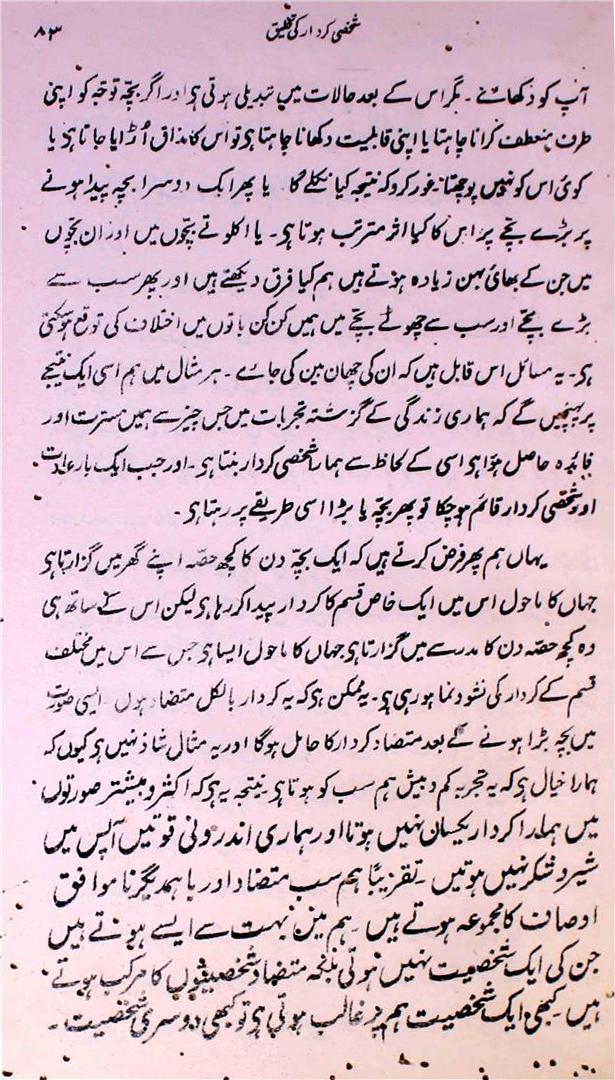 شخصی کردار کی تخلیق
۸۳
آپ کو دکھائے ۔ مگر اس کے بعد حالات میں تبدیلی ہوتی ہو اور اگر بچّہ توجّہ کو اپنی
طرف منعطف کرانا چاہتا یا اپنی قابلیت دکھانا چاہتا ہو تو اس کا مذاق اُڑایا جاتا ہو یا
کوئی اس کو نہیں پوچھتا۔ غور کرو کہ نتیجہ کیا نکلے گا ۔ یا پھر ایک دوسرا بچہ پیدا ہونے
پر بڑے بچّے پر اس کا کیا اثر مترتب ہوتا ہو ۔ یا اکلوتے بچّوں میں اور ان بچّوں
میں جن کے بھائی بہن زیادہ ہوتے ہیں ہم کیا فرق دیکھتے ہیں اور پھر سب سے
بڑے بچّے اور سب سے چھوٹے بچّے میں ہمیں کن کن باتوں میں اختلاف کی توقع ہو سکتی
ہو ۔ یہ مسائل اس قابل ہیں کہ ان کی چھان بین کی جائے ۔ ہر مثال میں ہم اسی ایک نتیجے
پر پہنچیں گے کہ ہماری زندگی کے گزشتہ تجربات میں جس چیز سے ہمیں مسرت اور
فائدہ حاصل ہوا ہو اسی کے لحاظ سے ہمارا شخصی کردار بنتا ہو ۔ اور جب ایک بار عادت
اور شخصی کردار قائم ہو چکا تو پھر بچّہ یا بڑا اسی طریقے پر رہتا ہو ۔
یہاں ہم پھر فرض کرتے ہیں کہ ایک بچّہ دن کا کچھ حصّہ اپنے گھر میں گزارتا ہو
جہاں کا ماحول اس میں ایک خاص قسم کا کردار پیدا کر رہا ہو لیکن اس کے ساتھ ہی
وہ کچھ حصّہ دن کا مدرسے میں گزارتا ہو جہاں کا ماحول ایسا ہو جس سے اس میں مختلف
قسم کے کردار کی نشو و نما ہو رہی ہو ۔ یہ ممکن ہو کہ یہ کردار بالکل متضاد ہوں ۔ ایسی صورت
میں بچہ بڑا ہونے کے بعد متضاد کردار کا حامل ہوگا اور یہ مثال شاذ نہیں ہو کیوں کہ
ہمارا خیال ہو کہ یہ تجربہ کم و بیش ہم سب کو ہوتا ہو ۔ نتیجہ یہ ہو کہ اکثر و بیشتر صورتوں
میں ہمارا کردار یکساں نہیں ہوتا اور ہماری اندرونی قوتیں آپس میں
شیر و شکر نہیں ہوتیں ۔ تقریباً ہم سب متضاد اور باہمدیگر نا موافق
اوصاف کا مجموعہ ہوتے ہیں ۔ ہم میں بہت سے ایسے ہوتے ہیں
جن کی ایک شخصیت نہیں ہوتی بلکہ متضاد شخصیتوں کا مرکب ہوتے
ہیں ۔ کبھی ایک شخصیت ہم پر غالب ہوتی ہو تو کبھی دوسری شخصیت ۔